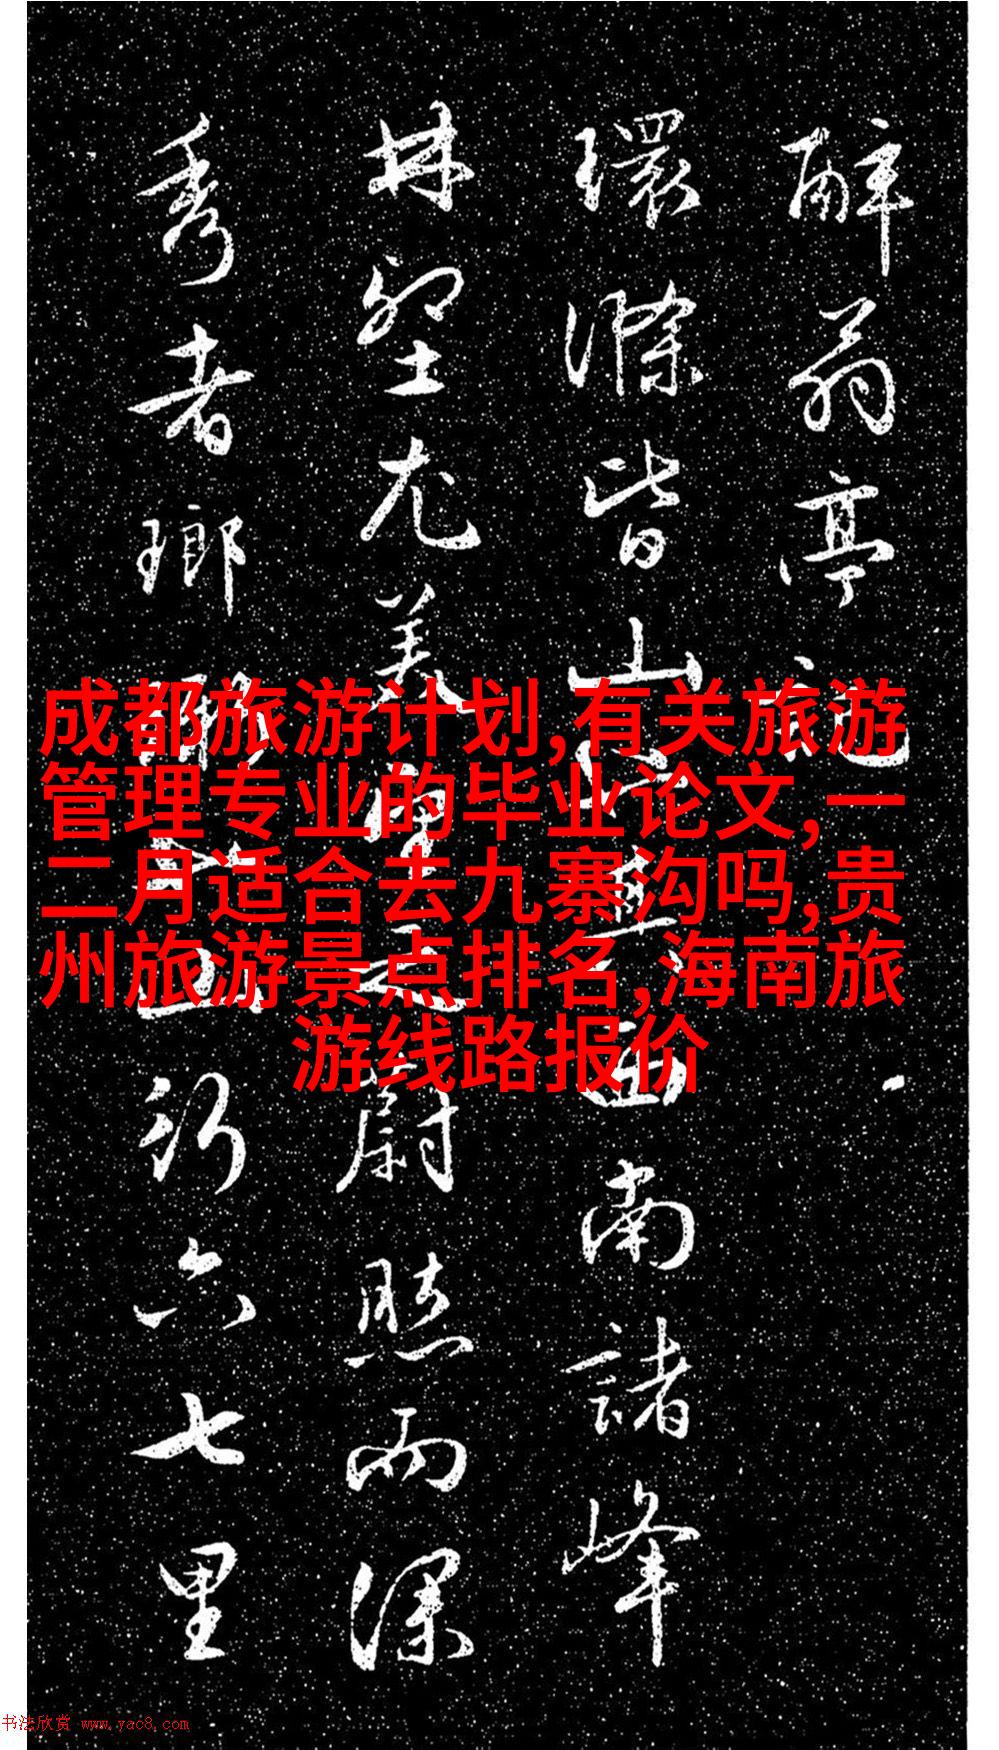 醉翁亭記
環滁皆山也其西南諸峰
林壑尤美望之蔚然而深
秀者瑯琊也山行六七里
成都旅游计划,有关旅游
管理专业的毕业论文,一
二月适合去九寨沟吗,贵
州旅游景点排名,海南旅
游线路报价
书法欣赏 www.yac8.com